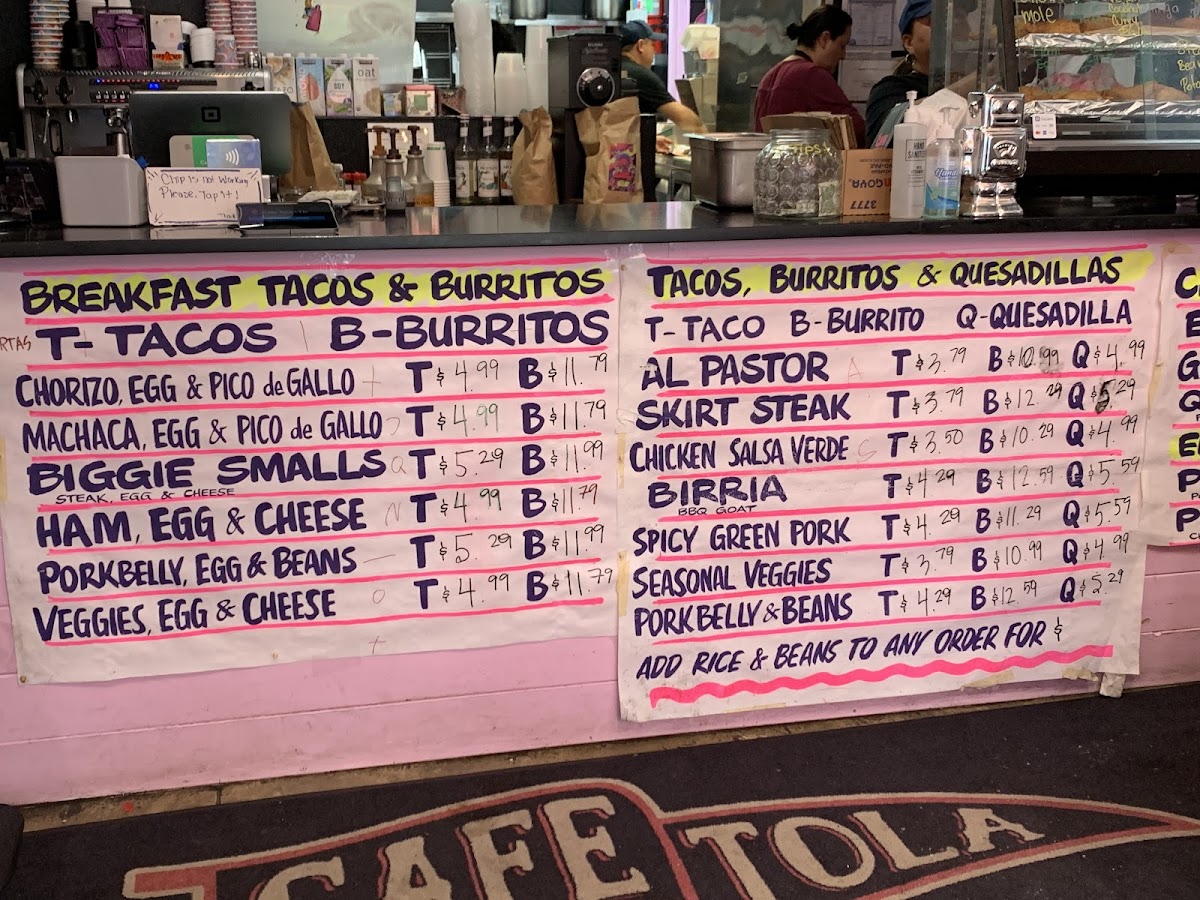 mole
oat
SOY
Chip is not working
Please, Tap it!
TIPS
GOYA
3777
HAND
SANITIZER
BREAKFAST TACOS & BURRITOS
RTAS T- TACOS B-BURRITOS
CHORIZO, EGG & PICO de GALLO T $4.99 B $11.79
MACHACA, EGG & PICO de GALLO T $4.99 B $11.79
BIGGIE SMALLS T $5.29 B $11.99
STEAK, EGG & CHEESE
HAM, EGG & CHEESE T $4.99 B $11.79
PORKBELLY, EGG & BEANS T $5.29 B $11.99
VEGGIES, EGG & CHEESE T $4.99 B $11.79
TACOS, BURRITOS & QUESADILLAS
T-TACO B-BURRITO Q-QUESADILLA
AL PASTOR T $3.79 B $10.99 Q $4.99
SKIRT STEAK T $3.79 B $12.29 Q $5.29
CHICKEN SALSA VERDE T $3.50 B $10.29 Q $4.99
BIRRIA T $4.29 B $12.59 Q $5.59
BBQ GOAT
SPICY GREEN PORK T $4.29 B $11.29 Q $5.59
SEASONAL VEGGIES T $3.79 B $10.99 Q $4.99
PORKBELLY & BEANS T $4.29 B $12.59 Q $5.29
ADD RICE & BEANS TO ANY ORDER FOR $
CAFE TOLA